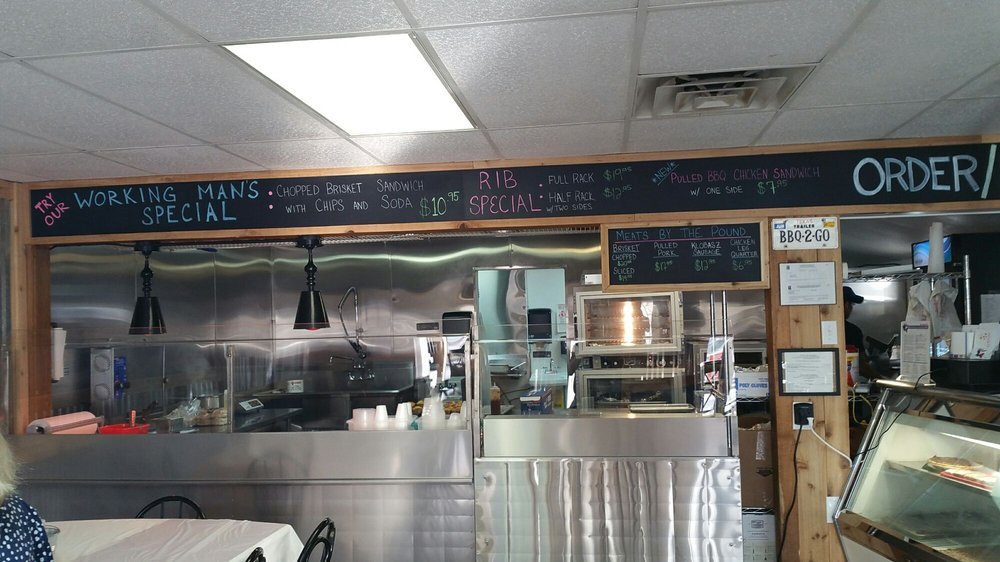 TRY OUR
WORKING MAN'S
SPECIAL
: CHOPPED BRISKET SANDWICH
WITH CHIPS AND SODA $10.95
RIB
SPECIAL
: FULL RACK $19.95
: HALF RACK $12.95
W/ TWO SIDES
*NEW*
PULLED BBQ CHICKEN SANDWICH
W/ ONE SIDE $7.95
ORDER/
MEATS BY THE POUND
BRISKET
CHOPPED
SLICED
PULLED
PORK
KLOBASZ
SAUSAGE
CHICKEN
LEG
QUARTER
TRAILER
BBQ-2-GO
POLY GLOVES